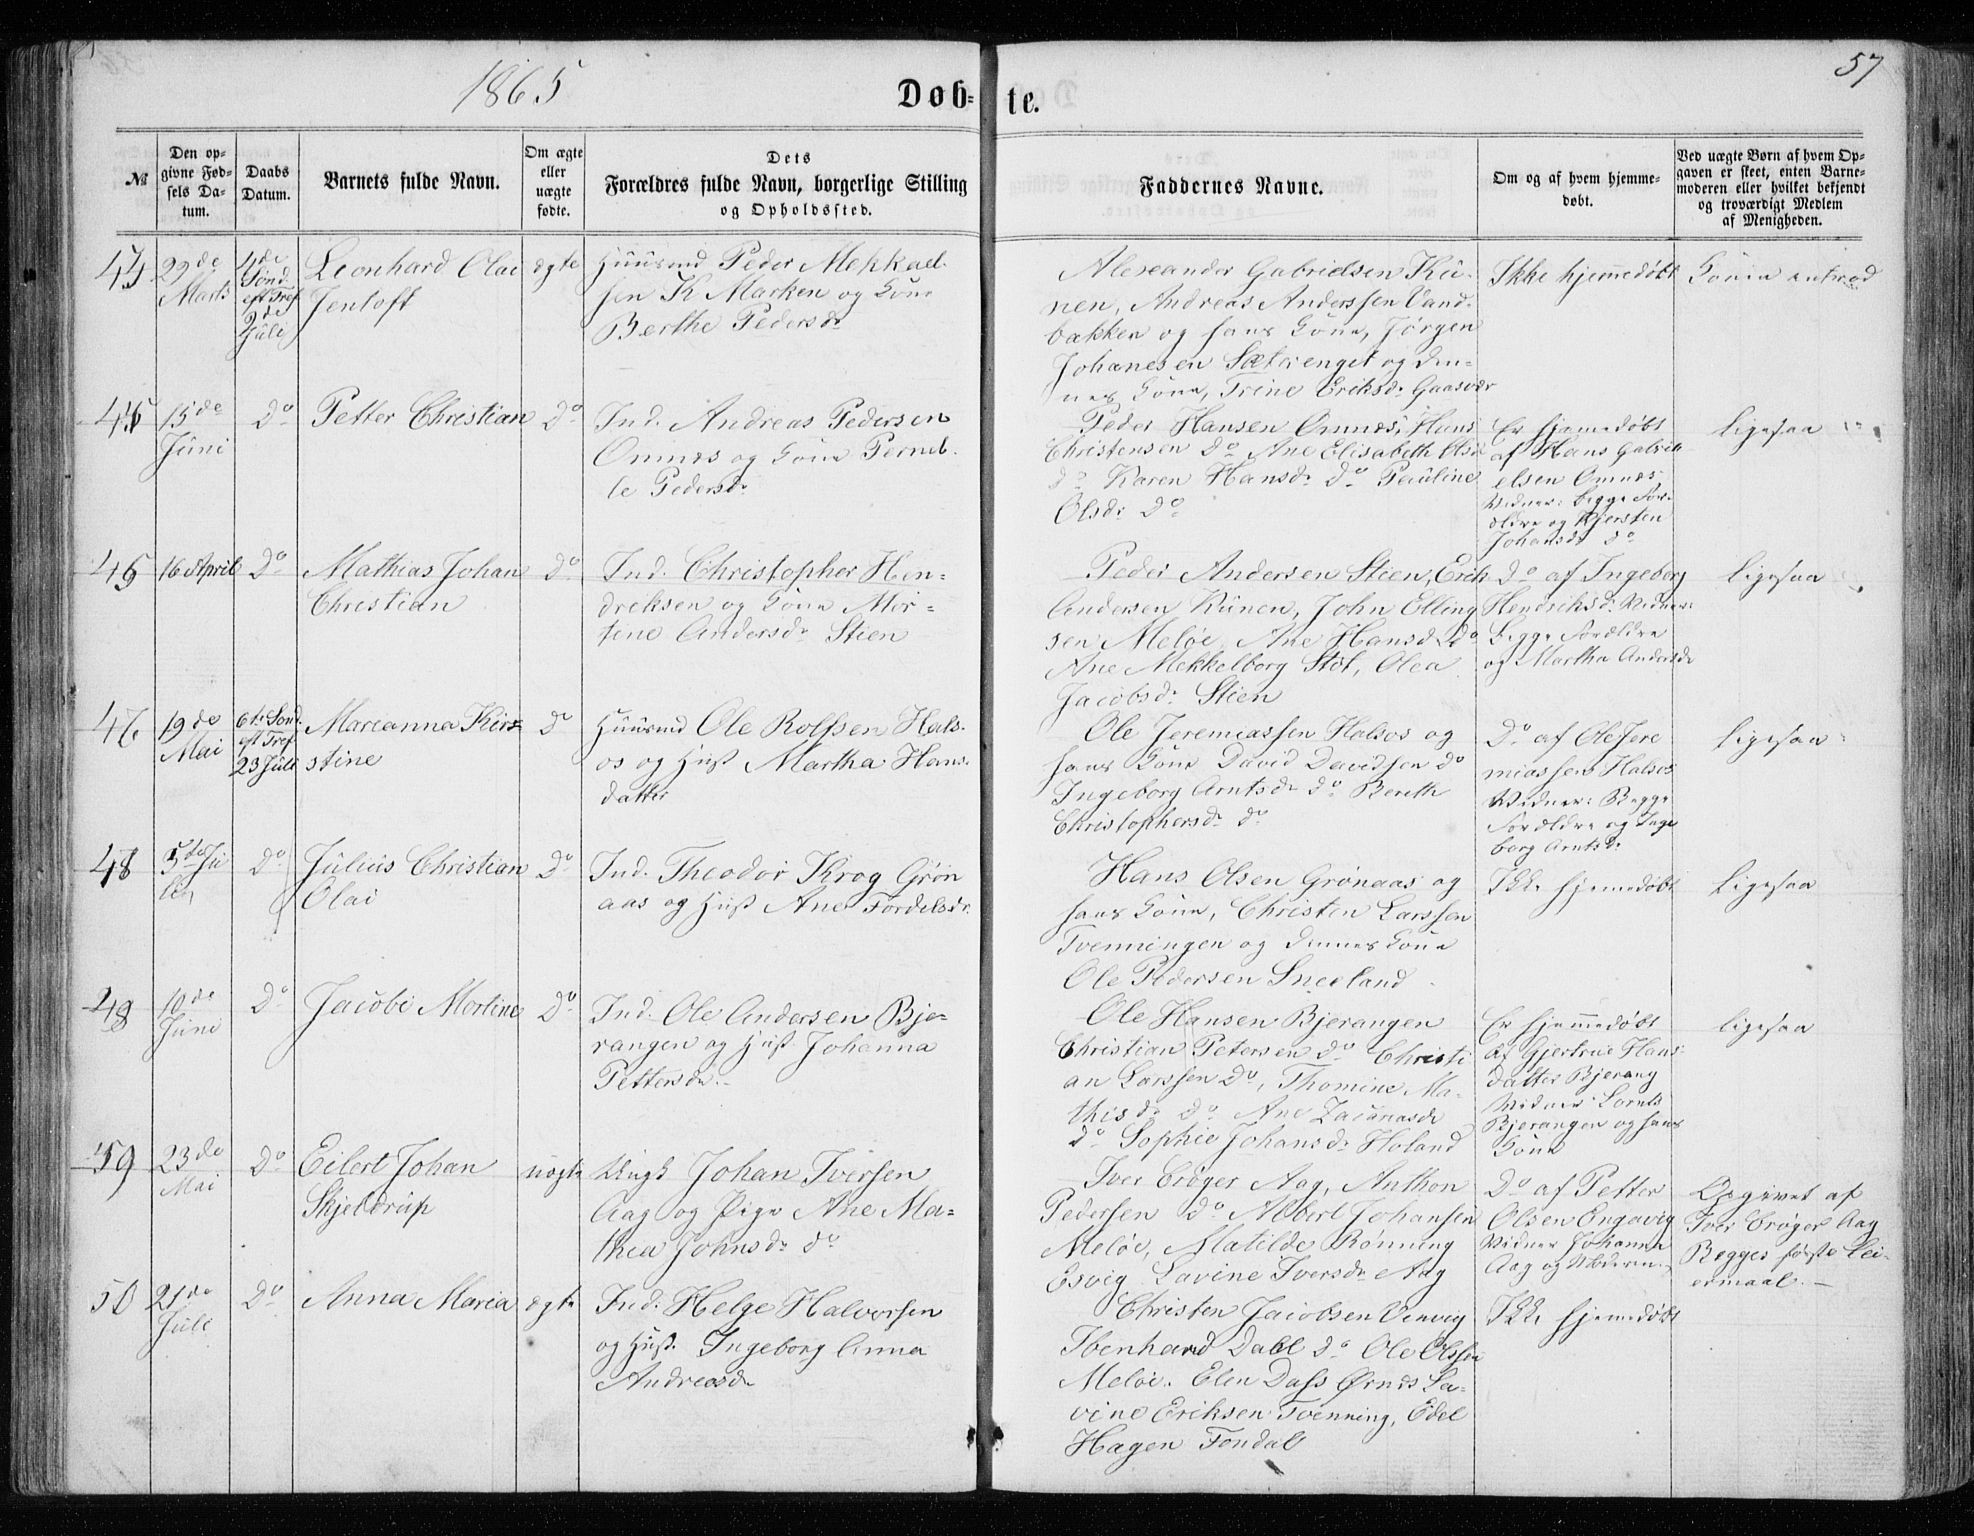 1865
57
Døb-
te.
№
Den op-
givne Fød-
sels Da-
tum.
Daabs
Datum.
Barnets fulde Navn.
Om ægte
eller
uægte
fødte.
Dets
Forældres fulde Navn, borgerlige Stilling
og Opholdssted.
Faddernes Navne.
Om og af hvem hjemme-
døbt.
Ved uægte Børn af hvem Op-
gaven er skeet, enten Barne-
moderen eller hvilket bekjendt
og troværdigt Medlem
af Menigheden.
44
29de
Marts
4de
Sønd
eft Tref
2de
Juli
Leonhard Olai
Jentoft
ægte
Huusmd Peder Mekkael-
sen K Marken og Kone
Berthe Pedersdr
Alexander Gabrielsen Ku-
nen, Andreas Anderssen Vand-
bakken og hans Kone, Jørgen
Johanesen Sæterenget og den-
nes Kone, Trine Eriksdr Gaasvær
Ikke hjemmedøbt
45
15de
Juni
Do
Petter Christian
Do
Ind. Andreas Pedersen
Omnes og Kone Pernel-
le Pedersdr
Peder Hansen Omnes, Hans
Christensen Do Ane Elisabeth Olsdr
Do Karen Hansdr Do Pauline
Olsdr Do
Er hjemmedøbt
af Hans Gabriel
elsen Omnes
Vidner: begge For-
ældre og Kjersten
Johansdr Do
ligesaa
46
16 April
Do
Mathias Johan
Christian
Do
Ind. Christopher Hen-
driksen og Kone Mor-
tine Andersdr Stien
Peder Andersen Stien, Erik
Andersen Kunen, John Elling
sen Meløe, Ane Hansdr Do
Ane Mekkelborg Støt, Olea
Jacobsdr Stien
Do af Ingeborg
Hendriksdr Vidner:
begge Forældre
og Martha Andersdr
ligesaa
47
19de
Mai
6te Sønd.
eft Tref.
23 Juli
Marianna Kir-
stine
Do
Huusmd Ole Rolfsen Hals-
os og Hust Martha Hans-
datter
Ole Jeremiassen Halsos og
hans Kone David Davidsen Do
Ingeborg Arntsdr Do Bereth
Christophersdr Do
Do af Ole Jere
miassen Halsos
Vidner: Begge
Forældre og Inge
borg Arntsdr
ligesaa
48
5de Ju
li
Do
Julius Christian
Olai
Do
Ind. Theodor Krog Grøn
aas og Hust Ane Fordelsdr.
Hans Olsen Grønaas og
hans Kone, Christen Larssen
Tvenningen og dennes Kone
Ole Pedersen Sneeland
Ikke hjemmedøbt
ligesaa
48
10de
Juni
Do
Jacobe Martine
Do
Ind. Ole Andersen Bje-
rangen og Hust. Johanna
Pettersdr.
Ole Hansen Bjerangen
Christian Petersen Do Christi
an Larssen Do, Thomine Ma-
thisdr Do Ane Zacariasdr
Do Sophie Johansdr Holand
Er hjemmedøbt
af Gjertrue Hans-
datter Bjerang
Vidner Lornts
Bjerangen og hans
Kone
ligesaa
59
23de
Mai
Do
Eilert Johan
Skjeldrup
uægte
Ungk Johan Iversen
Aag og Pige Ane Ma-
thea Johnsdr Do
Iver Crøger Aag, Anthon
Pedersen Do Albert Johansen
Meløe, Matilde Rønning
Esvig Lavine Iversdr Aag
Do af Petter
Olsen Engavig
Vidner Johanna
Aag og Moderen
Opgivet af
Iver Crøger Aag
Begges første Lei-
ermaal.
50
21de
Juli
Do
Anna Maria
ægte
Ind. Helge Halvorsen
og Hust. Ingeborg Anna
Andreasdr
Christen Jacobsen Venvig
Ibenhard Dall Do Ole Olsen
Meløe. Elen Dass Ørnes La-
vine Eriksen Tvenning, Edel
Hagen Fondal
Ikke hjemmedøbt